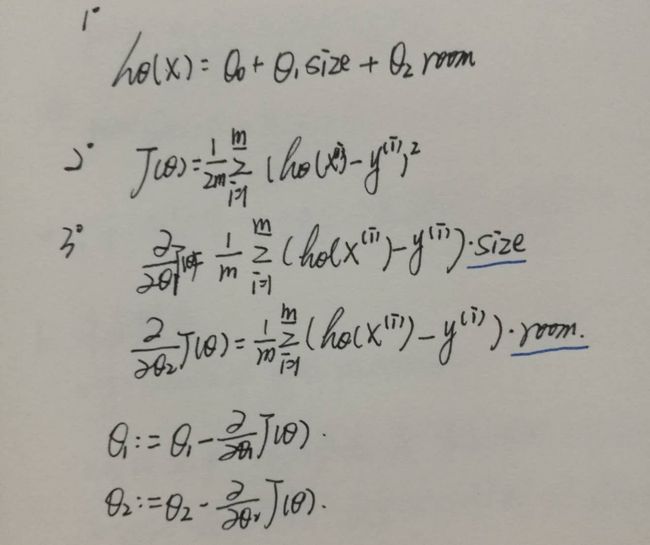 1°
hθ(x) = θ₀ + θ₁ size + θ₂ room
2° J(θ) = 1/2m Σᵢ₌₁ᵐ (hθ(x⁽ⁱ⁾) − y⁽ⁱ⁾)²
3° ∂/∂θ₁ J(θ) = 1/m Σᵢ₌₁ᵐ (hθ(x⁽ⁱ⁾) − y⁽ⁱ⁾) · size
∂/∂θ₂ J(θ) = 1/m Σᵢ₌₁ᵐ (hθ(x⁽ⁱ⁾) − y⁽ⁱ⁾) · room.
θ₁ := θ₁ − ∂/∂θ₁ J(θ).
θ₂ := θ₂ − ∂/∂θ₂ J(θ).